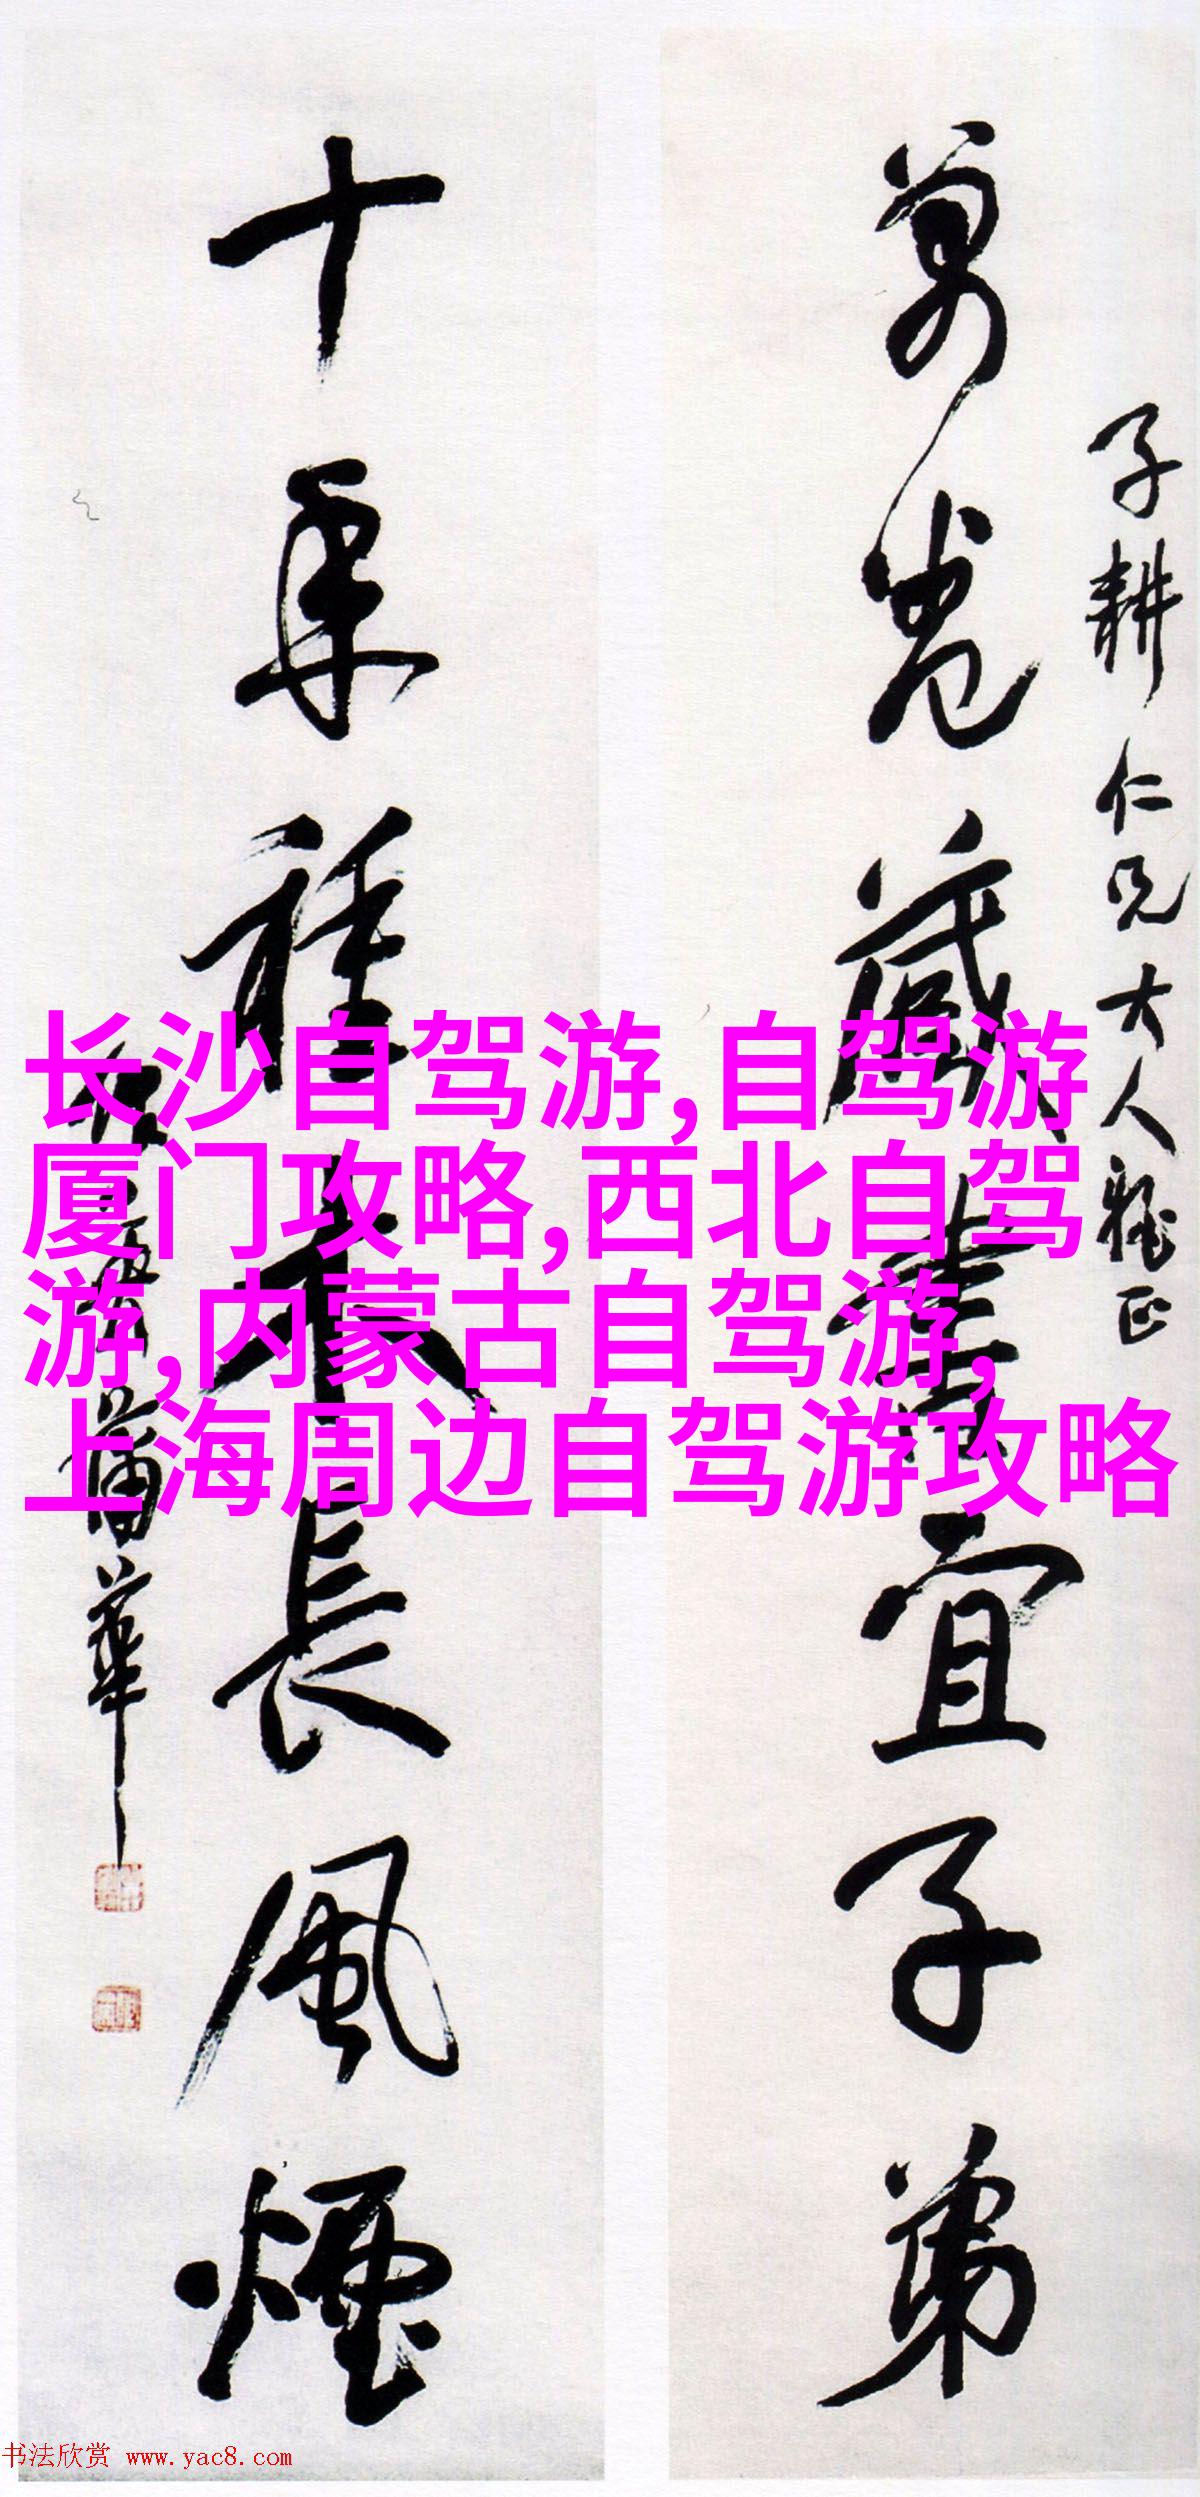 子耕仁兄大人雅正
萬卷藏書宜子弟
十年種木長風煙
蒲華
长沙自驾游,自驾游
厦门攻略,西北自驾
游,内蒙古自驾游,
上海周边自驾游攻略
书法欣赏 www.yac8.com